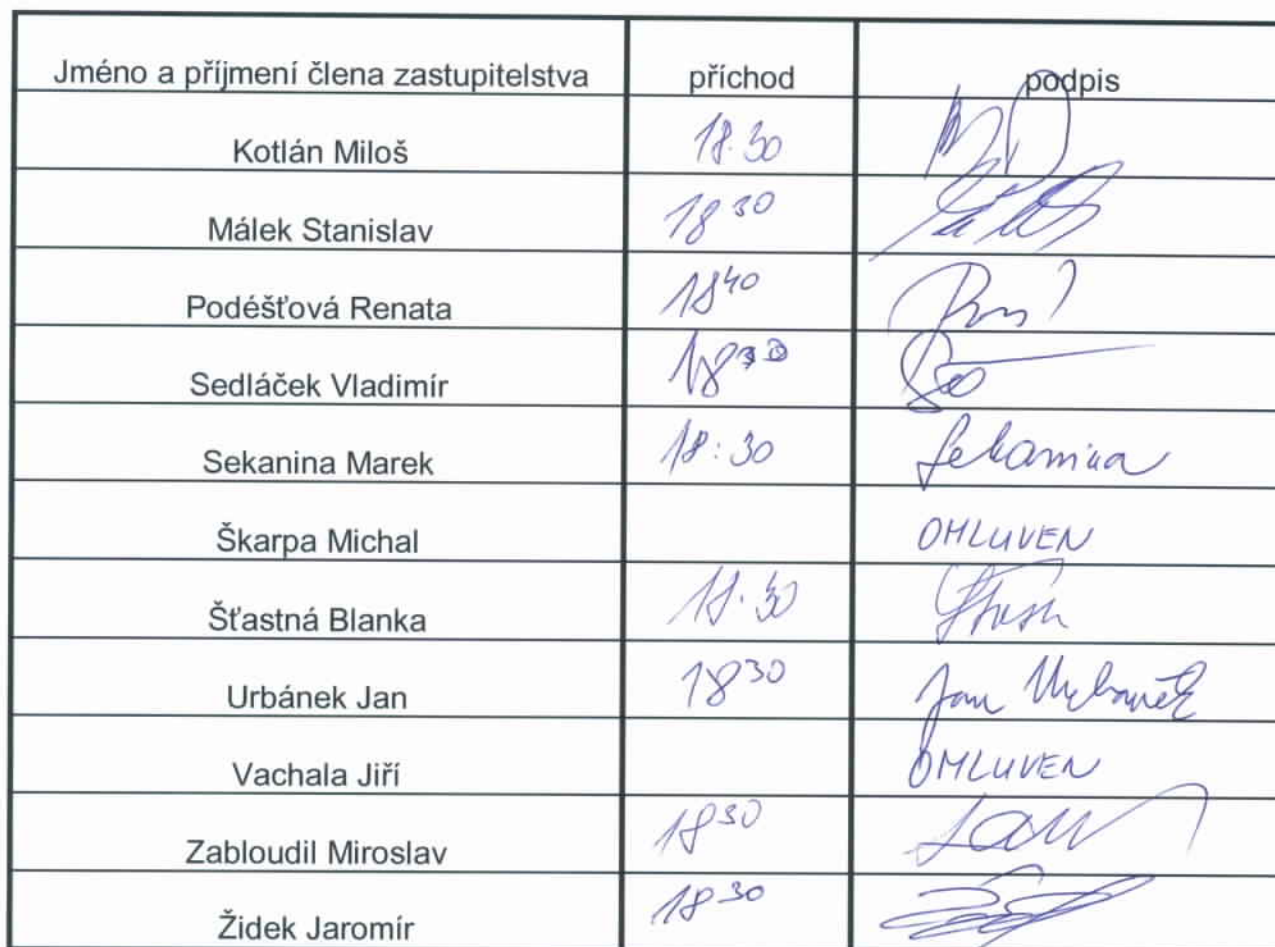 Jméno a příjmení člena zastupitelstva příchod podpis
Kotlán Miloš 18.30
Málek Stanislav 18 30
Podéšťová Renata 18 40
Sedláček Vladimír 18 30
Sekanina Marek 18:30 Sekanina
Škarpa Michal OMLUVEN
Šťastná Blanka 18.30
Urbánek Jan 18 30 Jan Urbánek
Vachala Jiří OMLUVEN
Zabloudil Miroslav 18 30
Židek Jaromír 18 30